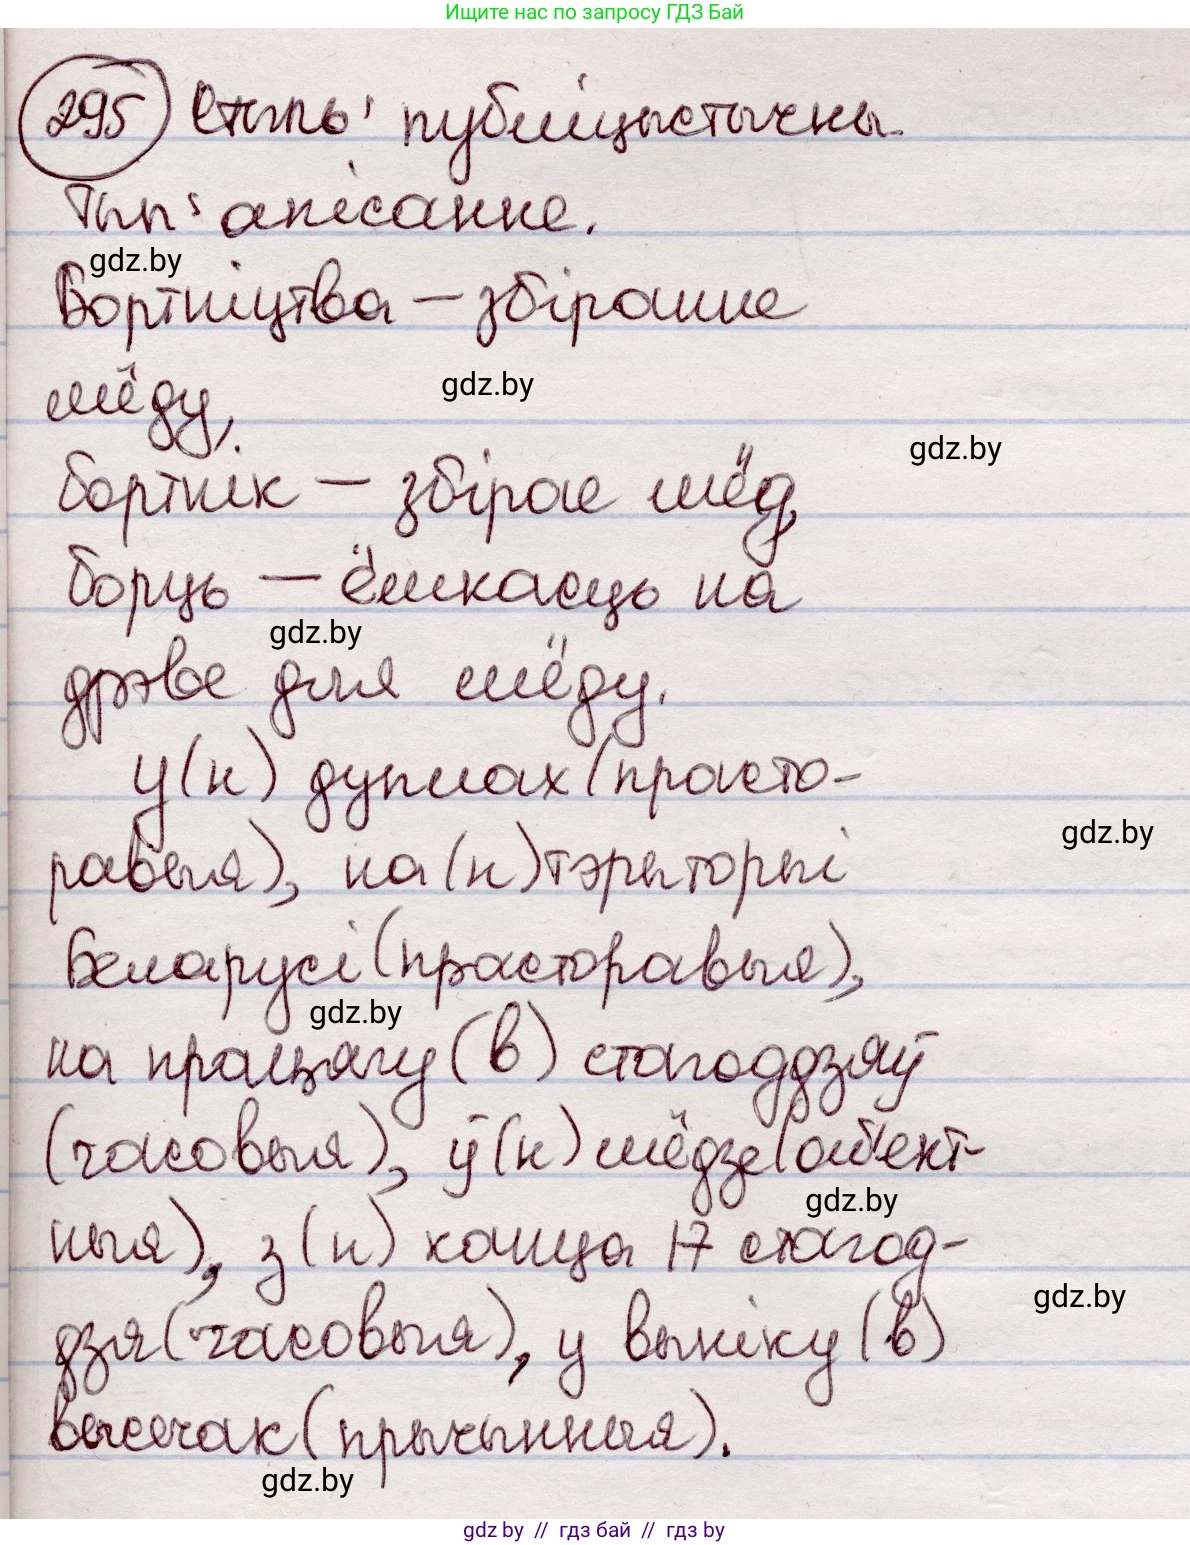 Ищите нас по запросу ГДЗ Бай
295 Стыль: публіцыстычны.
Тып: апісанне.
gdz.by
Бортніцтва – збіранне
мёду,
gdz.by
gdz.by
бортнік – збірае мёд,
борць – ёмкасць на
gdz.by
дрэве для мёду.
у(н) дуплах (прасто-
gdz.by
равыя), на(н) тэрыторыі
Беларусі (прасторавыя),
gdz.by
на працягу (в) стагоддзяў
(часовыя), ў(н) мёдзе (аб'ект-
gdz.by
ныя), з(н) канца 17 стагод-
gdz.by
дзя (часовыя), у выніку (в)
высечак (прычынныя).
gdz.by
gdz by // гдз бай // гдз by